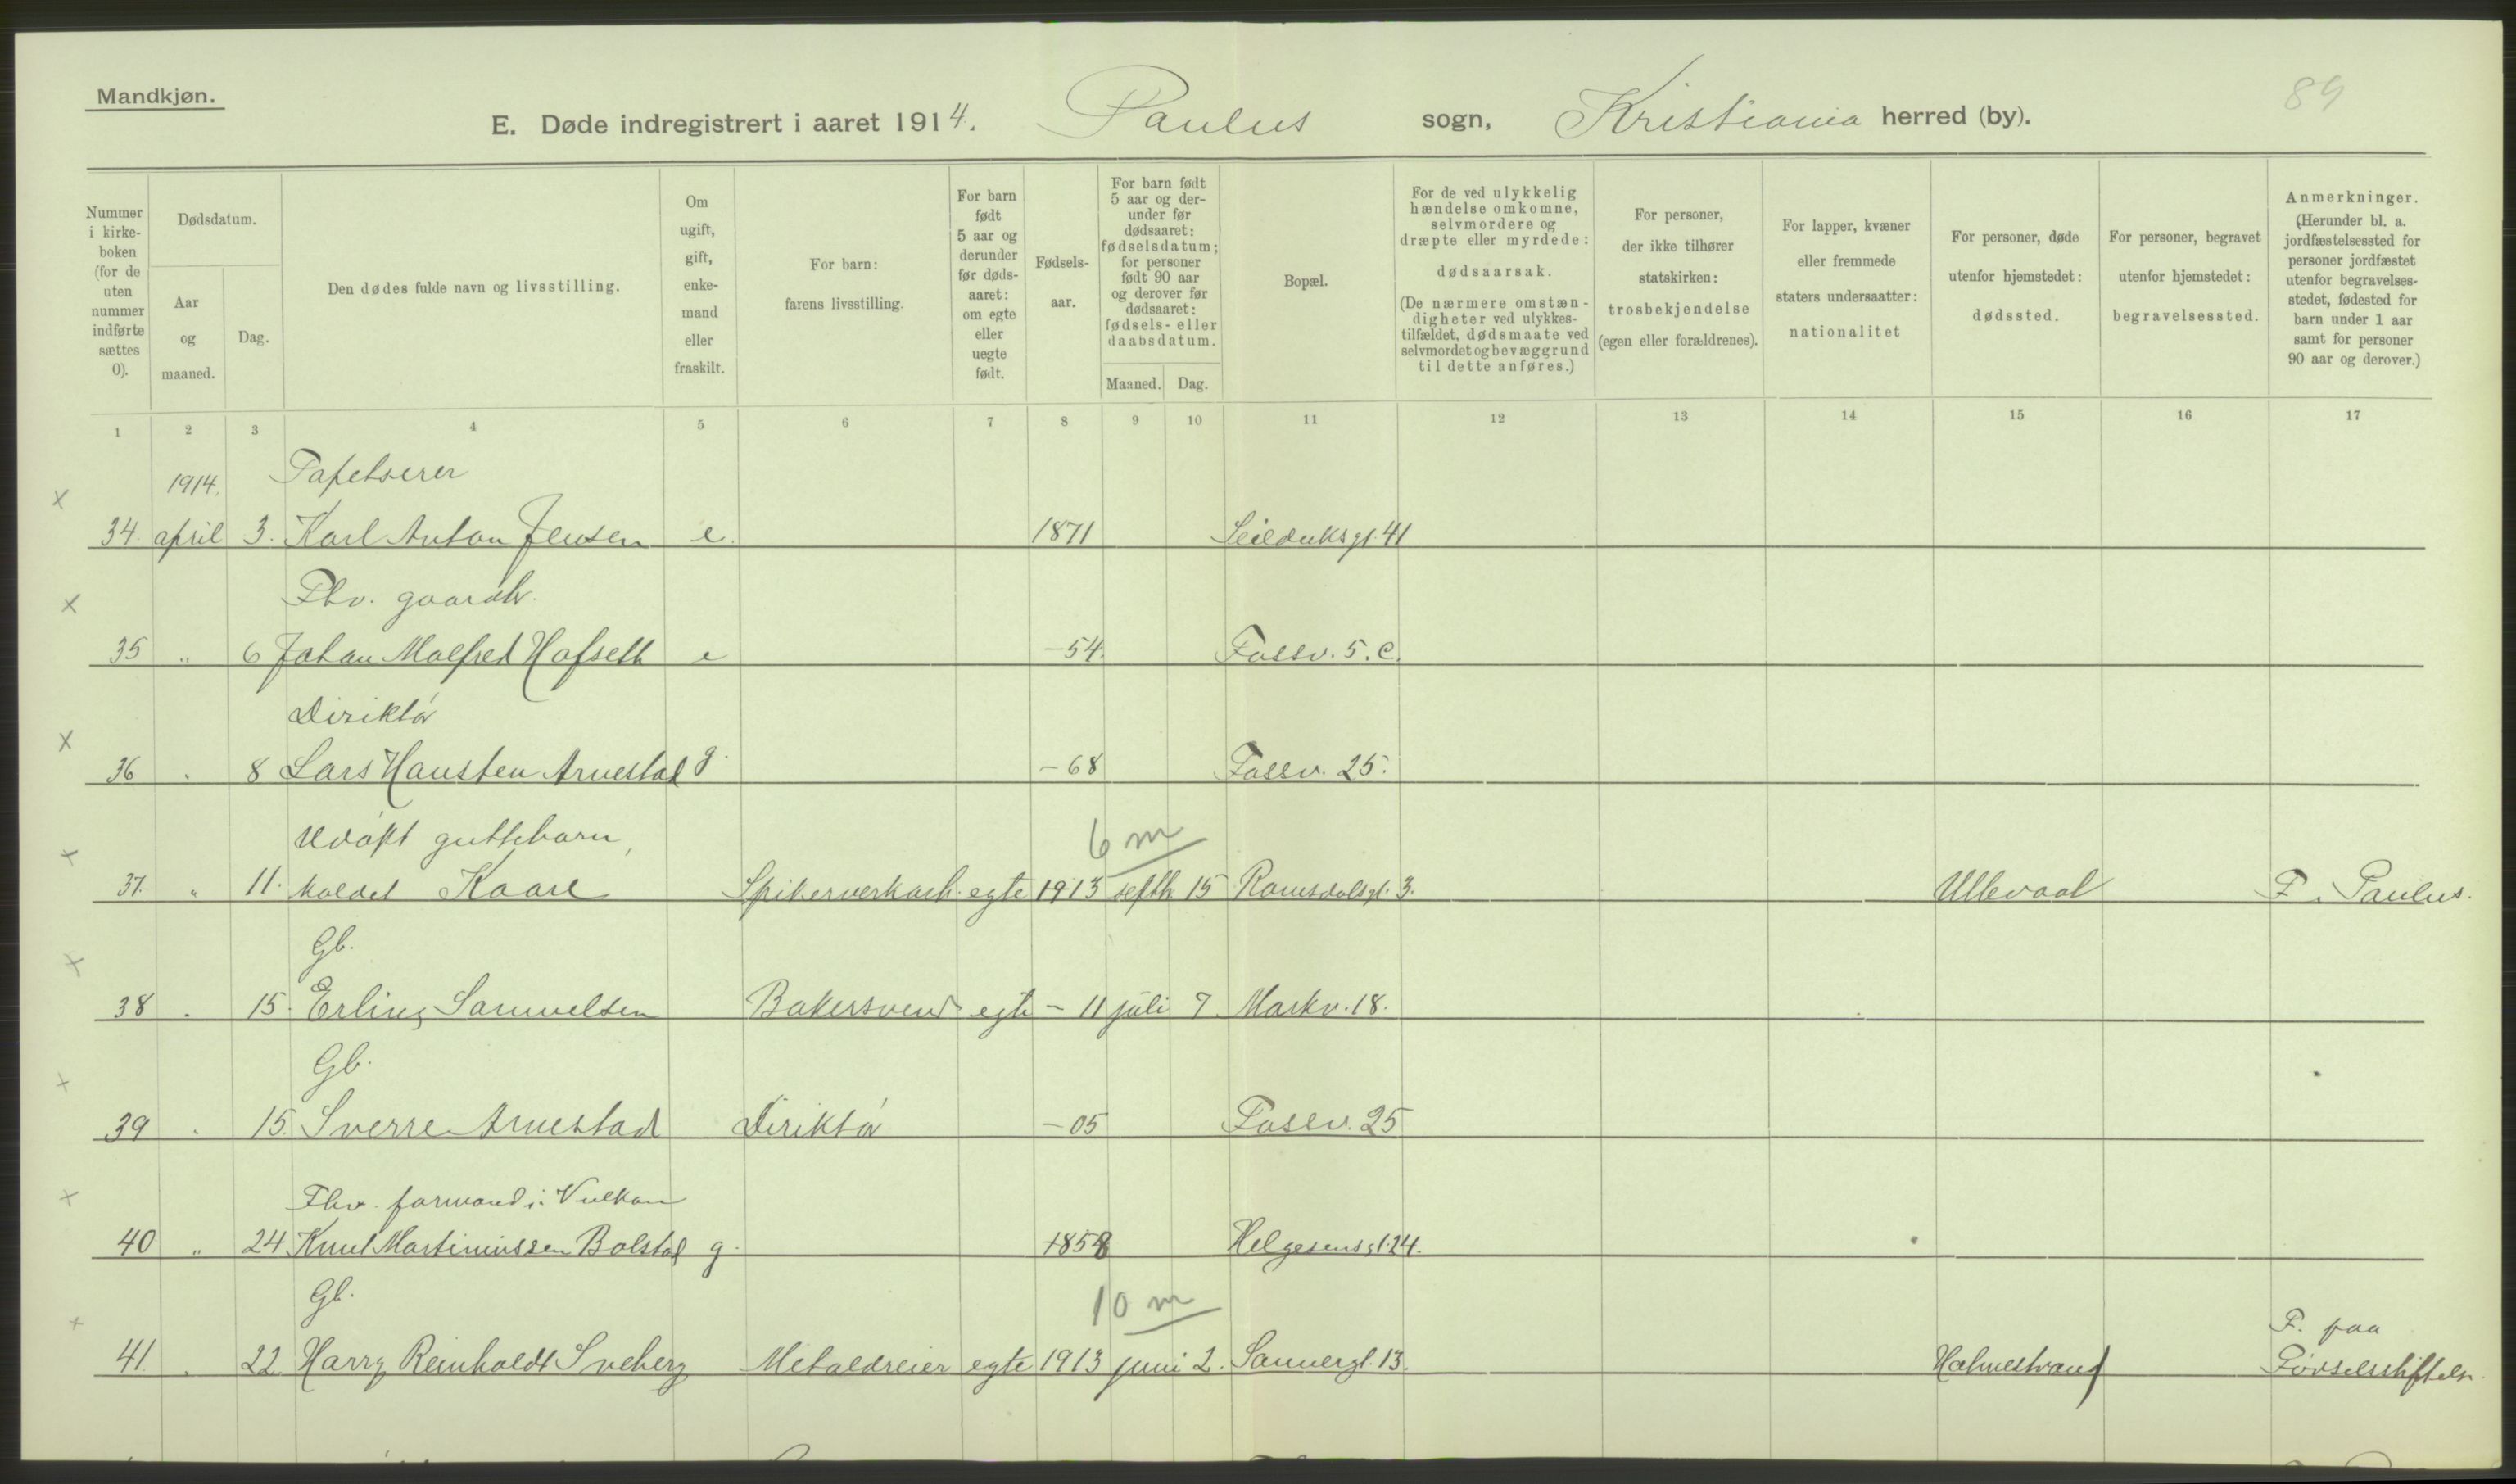 Mandkjøn.
89
E. Døde indregistrert i aaret 1914. Paulus sogn, Kristiania herred (by).
Nummer i kirke-boken (for de uten nummer indførte sættes 0).
Dødsdatum.
Aar og maaned.
Dag.
Den dødes fulde navn og livsstilling.
Om ugift, gift, enke-mand eller fraskilt.
For barn: farens livsstilling.
For barn født 5 aar og derunder før døds-aaret: om egte eller uegte født.
Fødsels-aar.
For barn født 5 aar og der-under før dødsaaret: fødselsdatum; for personer født 90 aar og derover før dødsaaret: fødsels- eller daabsdatum.
Maaned. Dag.
Bopæl.
For de ved ulykkelig hændelse omkomne, selvmordere og dræpte eller myrdede: dødsaarsak. (De nærmere omstæn-digheter ved ulykkes-tilfældet, dødsmaate ved selvmordet og bevæggrund til dette anføres.)
For personer, der ikke tilhører statskirken: trosbekjendelse (egen eller forældrenes).
For lapper, kvæner eller fremmede staters undersaatter: nationalitet
For personer, døde utenfor hjemstedet: dødssted.
For personer, begravet utenfor hjemstedet: begravelsessted.
Anmerkninger. (Herunder bl. a. jordfæstelsessted for personer jordfæstet utenfor begravelses-stedet, fødested for barn under 1 aar samt for personer 90 aar og derover.)
1 2 3 4 5 6 7 8 9 10 11 12 13 14 15 16 17
x 1914. Tapetserer
34. april 3. Karl Anton Jensen e. 1871 Seilduksgt. 41
x Fhv. gaardbr.
35 " 6 Johan Malfred Hofseth e -54. Fossv. 5. C.
Diriktør
x 36 " 8 Lars Hansten Arnestad g. -68 Fossv. 25.
x Udøpt guttebarn, 6 m
37. " 11. kaldet Kaare Spikerverkarb. egte 1913 septb 15 Romsdalsgt. 3. Ullevaal F. Paulus.
x Gb.
38 " 15. Erling Samuelsen Bakersvend egte - 11 juli 7. Markv. 18.
x Gb.
39 " 15. Sverre Arnestad Diriktør -05 Fossv. 25
x Fhv. formand i Vulkan
40 " 24 Knut Martiniussen Bolstad g. 1858 Helgesensgt. 24.
x Gb. 10 m F. paa
41. " 22 Harry Reinholdt Sveberg Metaldreier egte 1913 juni 2. Sannergt. 13. Holmestrand Fødselsstiftels.